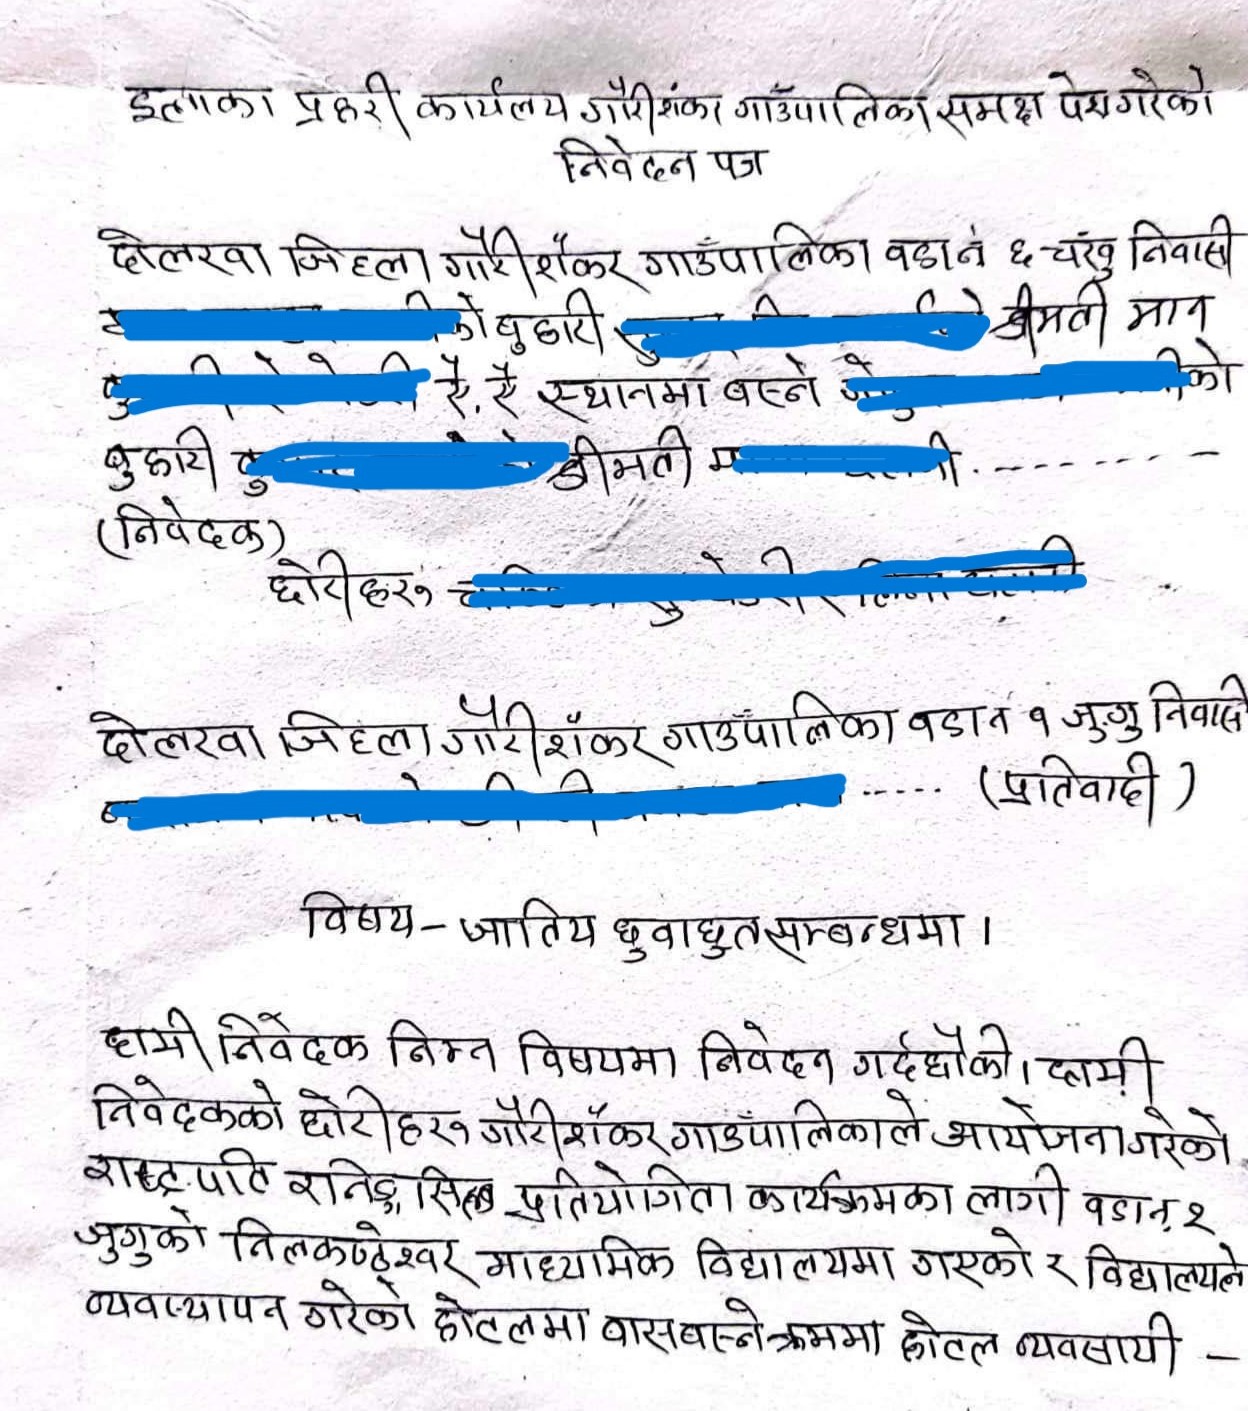 इलाका प्रहरी कार्यलय गौरीशंकर गाउँपालिका समक्ष पेश गरेको
निवेदन पत्र
दोलखा जिल्ला गौरीशँकर गाउँपालिका वडा नं ६ चंखु निवासी
को बुहारी श्रीमती मान
ऐ. ऐ स्थानमा बस्ने को
बुहारी श्रीमती
(निवेदक)
छोरीहरु
दोलखा जिल्ला गौरीशँकर गाउँपालिका वडा नं १ जुगु निवासी
..... (प्रतिवादी)
विषय - जातिय छुवाछुत सम्बन्धमा ।
हामी निवेदक निम्न विषयमा निवेदन गर्दछौकी । हामी
निवेदकको छोरीहरु गौरीशँकर गाउँपालिकाले आयोजना गरेको
राष्ट्रपति रनिङ्ग सिल्ड प्रतियोगिता कार्यक्रमका लागी वडा नं. २
जुगुको निलकण्ठेश्वर माध्यामिक विद्यालयमा गएको र विद्यालयले
व्यवस्थापन गरेको होटलमा वास बस्ने क्रममा होटल व्यवसायी -